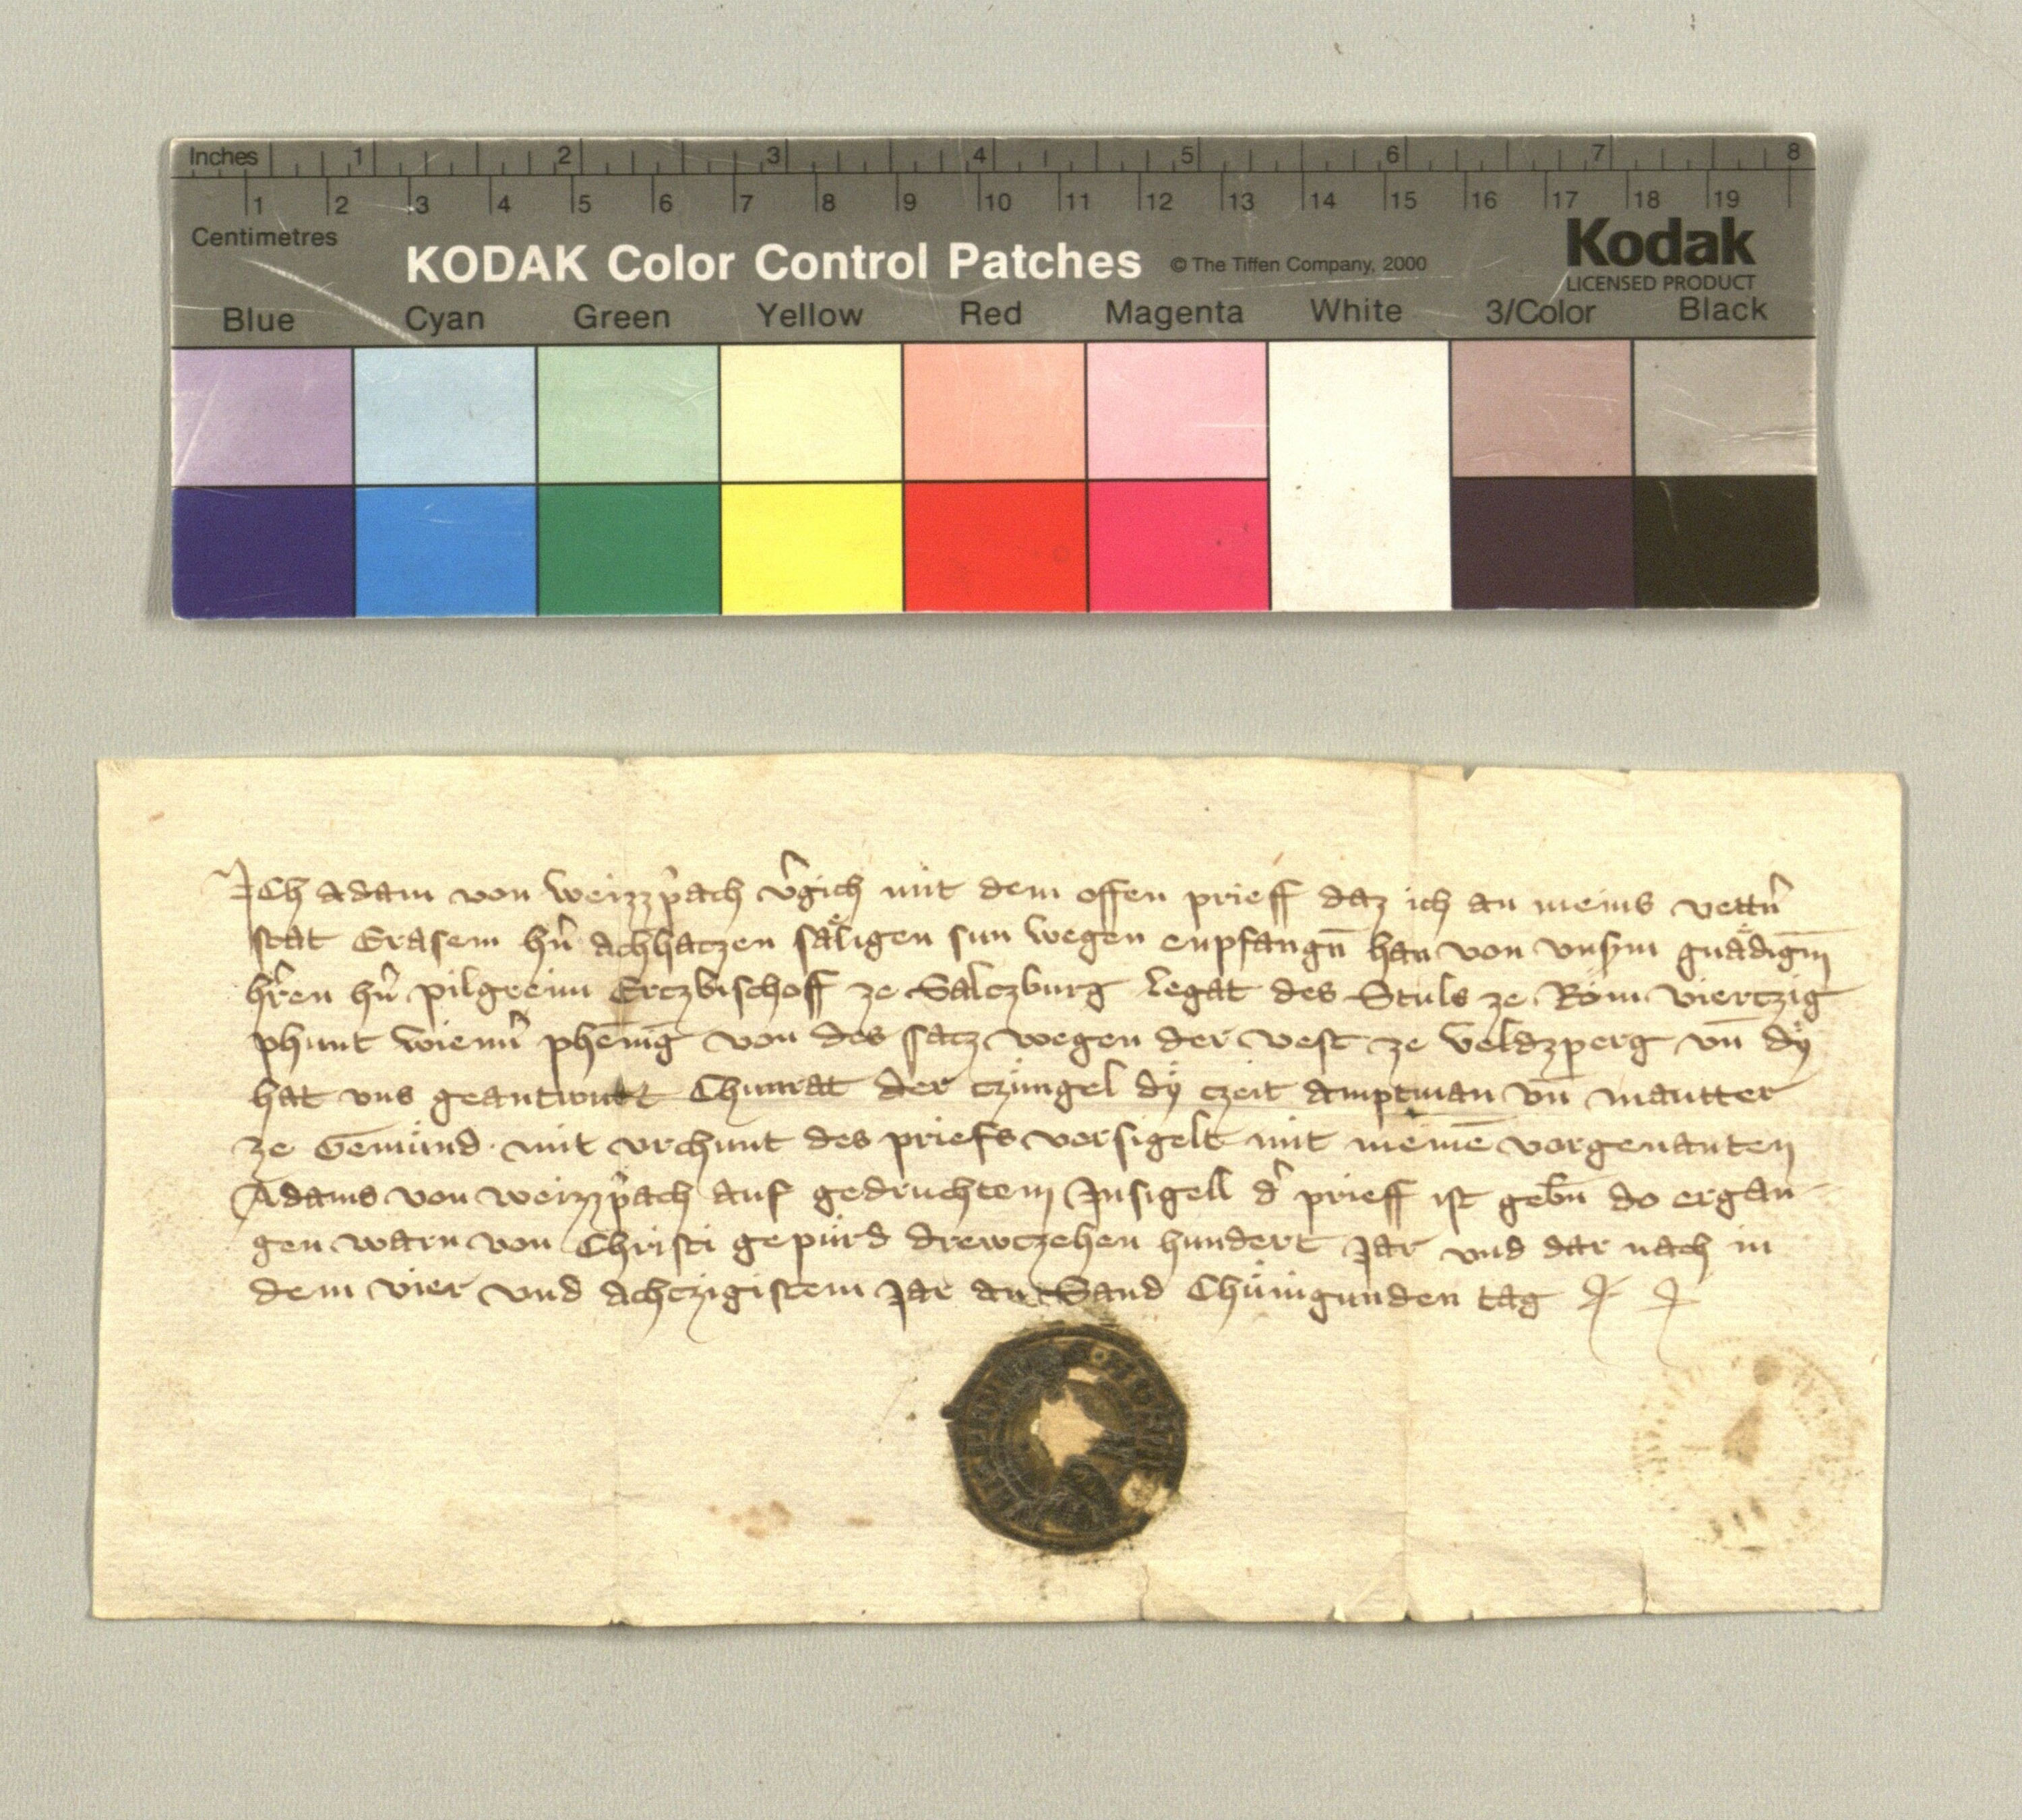 Inches 1 2 3 4 5 6 7 8
1 2 3 4 5 6 7 8 9 10 11 12 13 14 15 16 17 18 19
Centimetres
KODAK Color Control Patches © The Tiffen Company, 2000 Kodak
LICENSED PRODUCT
Blue Cyan Green Yellow Red Magenta White 3/Color Black
Ich Adam von Weizzp̉ach v̉gich mit dem offen prieff daz ich an meins vettn̉
stat Erasem hn̉ Achhatzen sa͑ligen sun wegen enpfangn̄ han von vnsꝫm gna͑digm̄
hr̉en hn̉ pilgreim Ertzbischoff ze Saltzburg Legat des Stuls ze Rom viertzig
phunt wienn̉ phēnīg von des satz wegen der vest ze Veldzperg vn̄ dÿ
hat vns geantwurt Chunrat der Czüngel dÿ czeit amptman vn̄ mautter
ze Gemünd mit vrchunt des priefs versigelt mit meinē vorgenanten
Adams von weizzp̉ach auf gedruchtem Insigell d̉ prieff ist gebn̄ do ergan
gen warn von Christi gepürd drewczehen hundert jar vnd dar nach in
dem vier vnd achtzigistem jar an Sand Chünigunden tag